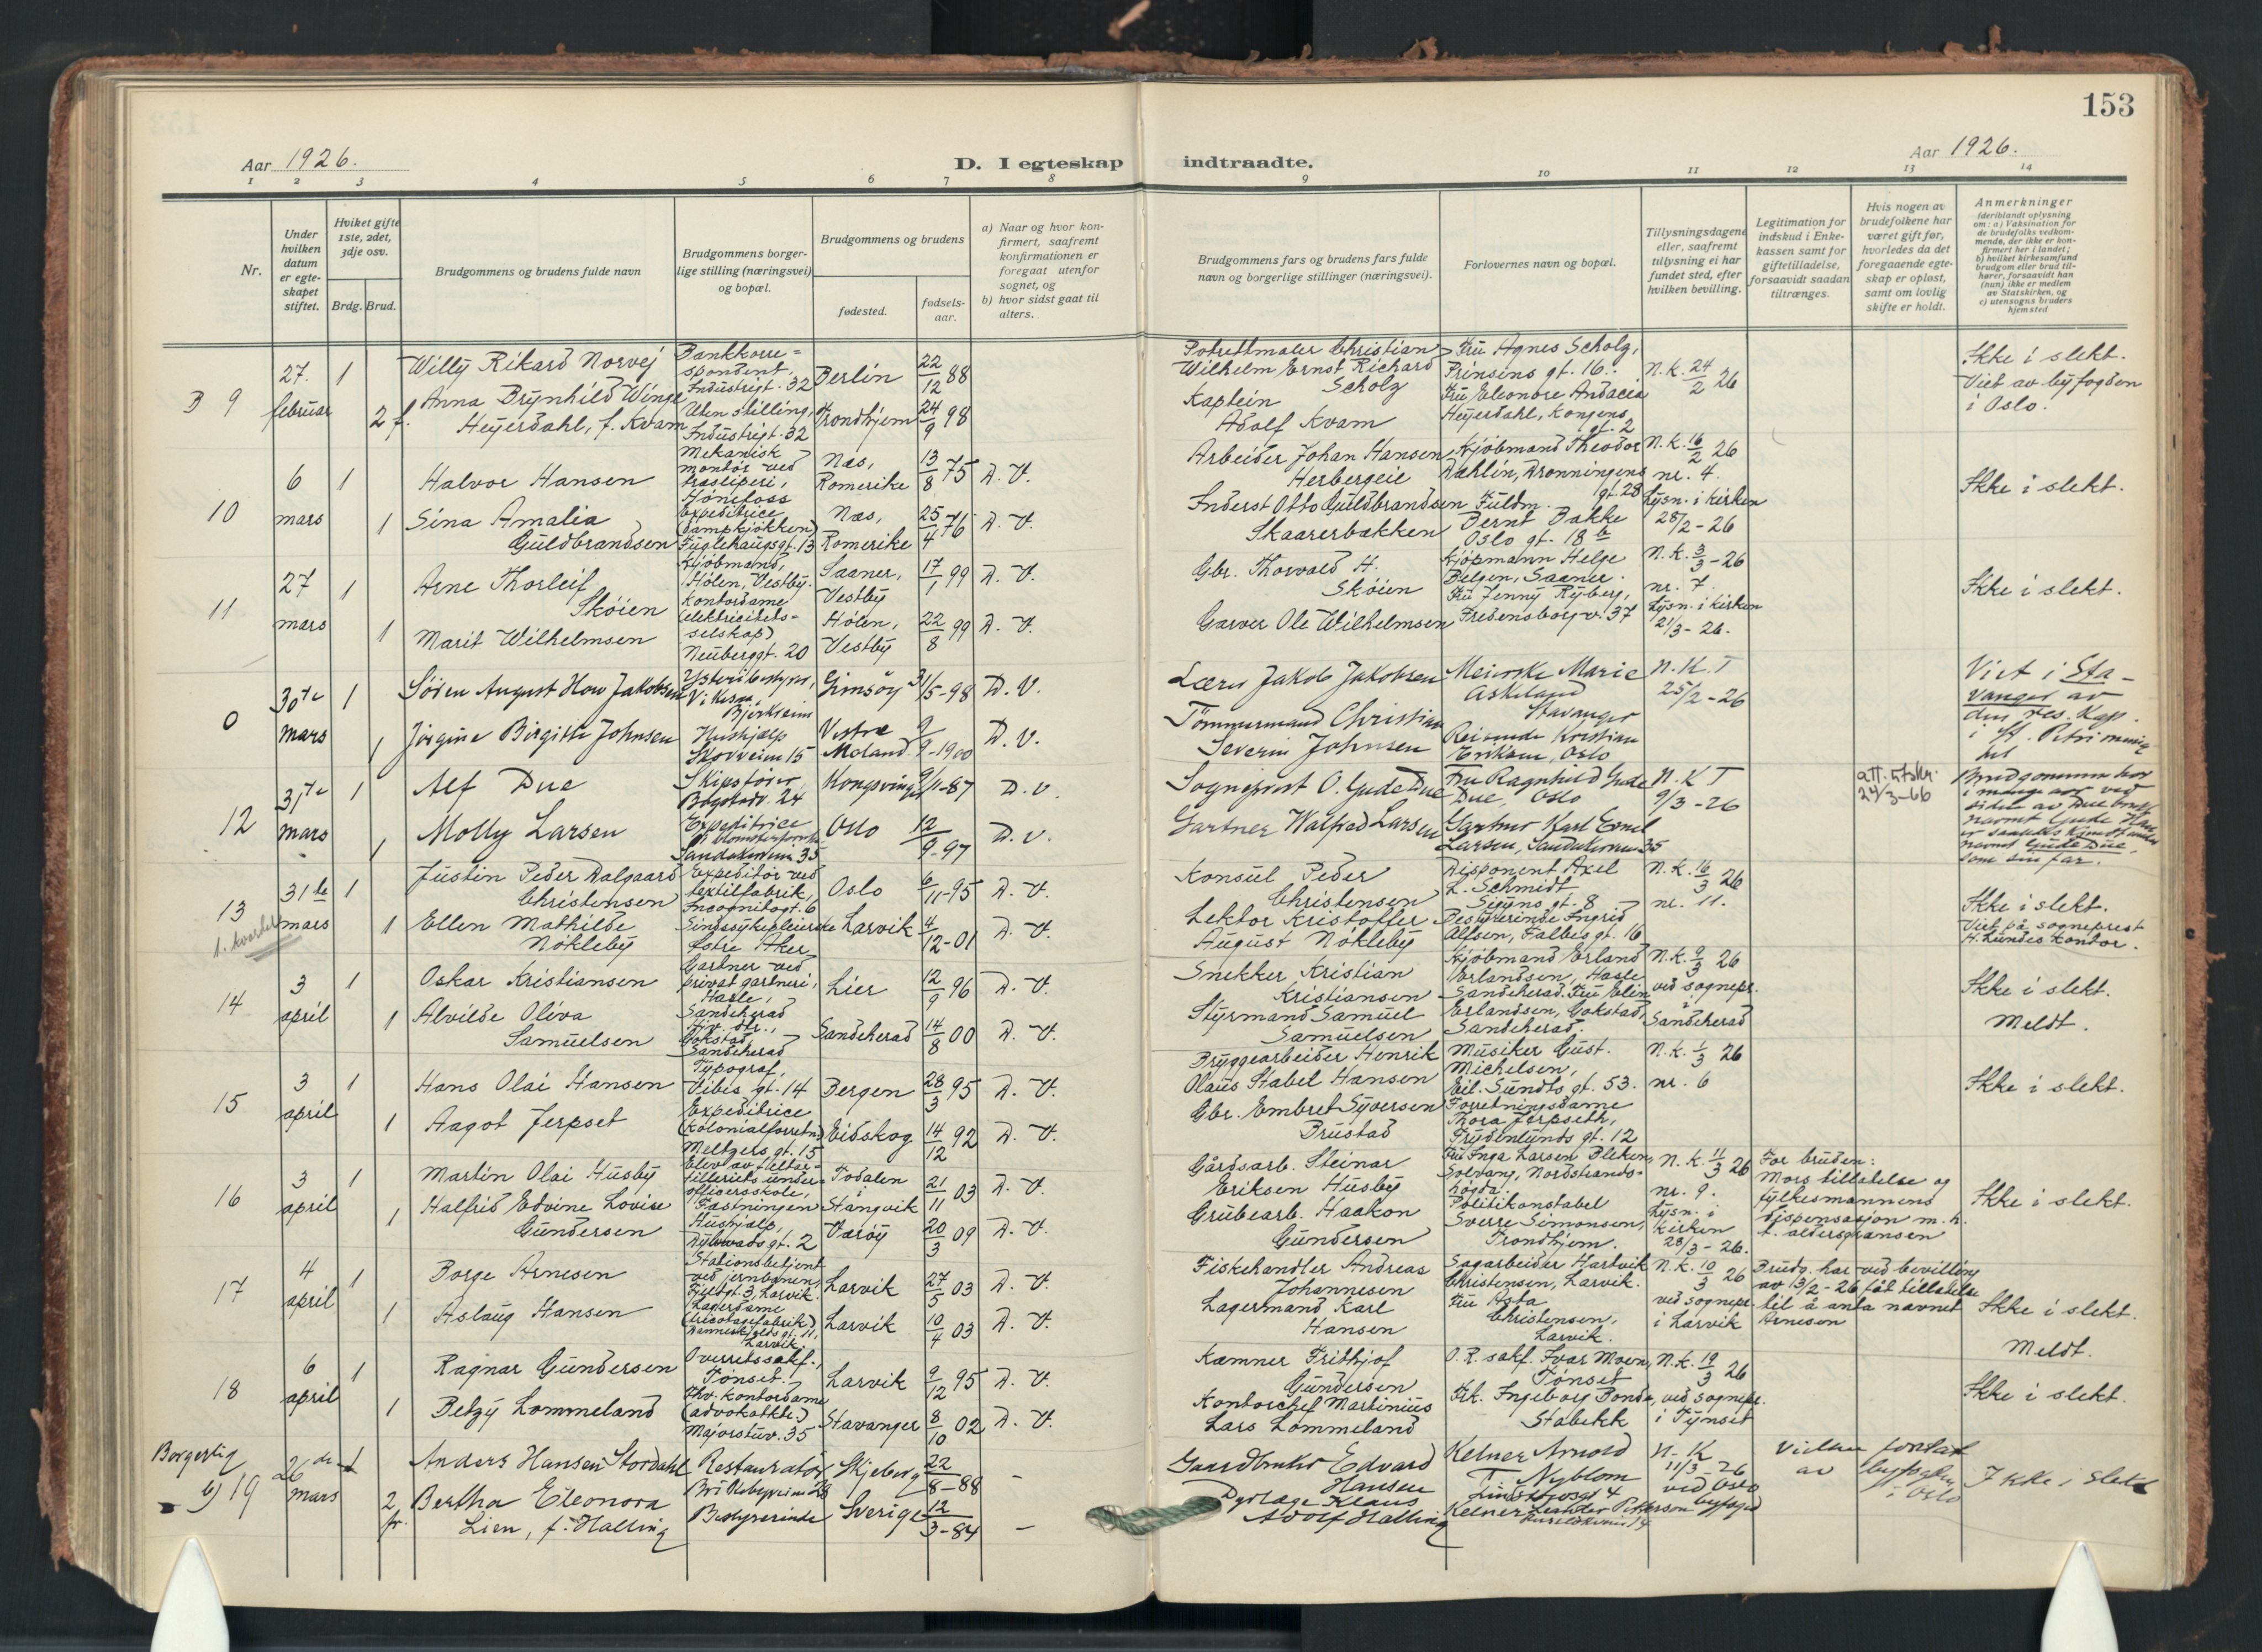 153
Aar 1926.
D. I egteskap indtraadte.
Aar 1926.
1 2 3 4 5 6 7 8 9 10 11 12 13 14
Nr.
Under hvilken datum er egte-skapet stiftet.
Hvilket gifte 1ste, 2det, 3dje osv.
Brdg. Brud.
Brudgommens og brudens fulde navn
Brudgommens borger-lige stilling (næringsvei) og bopæl.
Brudgommens og brudens
fødested.
fødsels-aar.
a) Naar og hvor kon-firmert, saafremt konfirmationen er foregaat utenfor sognet, og
b) hvor sidst gaat til alters.
Brudgommens fars og brudens fars fulde navn og borgerlige stillinger (næringsvei).
Forlovernes navn og bopæl.
Tillysningsdagene eller, saafremt tillysning ei har fundet sted, efter hvilken bevilling.
Legitimation for indskud i Enke-kassen samt for giftetilladelse, forsaavidt saadan tiltrænges.
Hvis nogen av brudefolkene har været gift før, hvorledes da det foregaaende egte-skap er opløst, samt om lovlig skifte er holdt.
Anmerkninger
(deriblandt oplysning om: a) Vaksination for de brudefolks vedkom-mende, der ikke er kon-firmert her i landet; b) hvilket kirkesamfund brudgom eller brud til-hører, forsaavidt han (hun) ikke er medlem av Statskirken, og c) utensogns bruders hjemsted
B 9
27. februar
1
Willy Rikard Norvej
Bankkorre=spondent, Industrigt. 32
Berlin
22/12 88
Potrettmaler Christian Wilhelm Ernst Richard Scholz
Fru Agnes Scholz, Prinsens gt. 16.
N.K. 24/2 26
Ikke i slekt.
Viet av byfogden i Oslo.
2 f.
Anna Brynhild Winge Heyerdahl, f. Kvam
Uten stilling, Industrigt. 32
Trondhjem
24/9 98
Kaptein Adolf Kvam
Fru Eleonore Andacia Heyerdahl, Kongens gt. 2
10
6 mars
1
Halvor Hansen
Mekanisk montør ved træsliperi, Hønefoss
Næs, Romerike
13/8 75
D. V.
Arbeider Johan Hansen Herbergeie
Kjøbmand Theodor Dahlin, Dronningens gt. 28
N.K. 16/2 26
nr. 4.
Ikke i slekt.
1
Sina Amalia Guldbrandsen
Expeditrice (dampkjøkken) Fuglehaugsgt. 13
Næs, Romerike
25/4 76
D. V.
Inderst Otto Guldbrandsen Skaarerbakken
Fuldm. Bernt Bakke Oslo gt. 18 b
Lysn. i kirken 28/2 - 26
11
27 mars
1
Arne Thorleif Skøien
Kjøbmand, Hølen, Vestby.
Saaner, Vestby
17/1 99
D. V.
Gbr. Thorvald H. Skøien
Kjøpmann Helge Belgen, Saaner.
N.K. 3/3 - 26
nr. 7.
Ikke i slekt.
1
Marit Wilhelmsen
Kontordame (elektricitets=selskap) Neuberggt. 20
Hølen, Vestby
22/8 99
D. V.
Garver Ole Wilhelmsen
Fru Jenny Ryberg, Fredensborgv. 37
Lysn. i kirken 21/3 - 26.
0
30te mars
1
Søren August How Jakobsen
Bjerkreim
Gimsøy
31/5-98
D. V.
Lærer Jakob Jakobsen
Meierske Marie Askeland Stavanger
N.K.T 25/2 - 26
Viet i Stavanger av den res. kap. i St. Petri menighet
1
Jørgine Birgitte Johnsen
Hushjælp Skovveien 15
Vestre Moland
9-1900
D. V.
Tømmermand Christian Severin Johnsen
Reisende Kristian Eriksen, Oslo
12
31te mars
1
Alf Due
Skipsfører, Bogstadv. 24
Kongsvinger
9/11-87
D. V.
Sogneprest O. Gude Due
Fru Ragnhild Gude Due, Oslo
N.K.T 9/3 - 26
att. utskr. 24/3-66
Brudgommen har i mange aar ved siden av Due brukt navnet Gude
navnet Gude Due, som sin far.
1
Molly Larsen
Expeditrice
Oslo
12/9-97
D. V.
Gartner Walfred Larsen
Gartner Karl Emil Larsen, 35
13
1. kvartal
31te mars
1
Justin Peder Dalgaard Christensen
Expeditør ved textilfabrik, Incognitogt. 6
Oslo
6/11-95
D. V.
Konsul Peder Christensen
Disponent Axel L. Schmidt Sigyns gt. 8
N.K. 16/3 26
nr. 11.
Ikke i slekt.
Viet på sogneprest H. Lundes kontor.
1
Ellen Mathilde Nøkleby
Sindssykepleierske Østre Aker
Larvik
4/12-01
D. V.
Lektor Kristoffer August Nøkleby
Bestyrerinde Ingrid Alfsen, Falbes gt. 16
14
3 april
1
Oskar Kristiansen
Gartner ved privat gartneri, Hasle, Sandeherad
Lier
12/9 96
D. V.
Snekker Kristian Kristiansen
Kjøbmand Erland Erlandsen, Hasle Sandeherad.
N.K. 9/3 26
ved sognepr. i Sandeherad
Ikke i slekt.
Meldt.
1
Alvilde Oliva Samuelsen
Hjv. dtr., Gokstad, Sandeherad
Sandeherad
14/8 00
D. V.
Styrmand Samuel Samuelsen
Fru Elin Erlandsen, Gokstad, Sandeherad.
15
3 april
1
Hans Olai Hansen
Typograf, Vibes gt. 14
Bergen
28/3 95
D. V.
Bryggearbeider Henrik Olaus Stabel Hansen
Musiker Gust. Michelsen, Eil. Sundts gt. 53.
N.K. 1/3 26
nr. 6
Ikke i slekt.
1
Aagot Jerpset
Expeditrice (kolonialforretn.) Meltzers gt. 15
Eidskog
14/12 92
D. V.
Gbr. Embret Syversen Brustad
Forretningsdame Thora Jerpseth, Frydenlunds gt. 12
16
3 april
1
Martin Olai Husby
Elev av feltar=tilleriets under=officersskole, Fæstningen
Todalen i Stangvik
21/11 03
D. V.
Gårdsarb. Steinar Eriksen Husby
Fru Inga Larsen Bleken, Solvang, Nordstrands=høgda.
N.K. 11/3 26
nr. 9.
For bruden: Mors tillatelse og fylkesmannens dispensasjon m. h. t. aldersgrænsen
Ikke i slekt.
1
Halfrid Edvine Lovise Gundersen
Hushjælp, gt. 2
Værøy
20/3 09
D. V.
Grubearb. Haakon Gundersen
Politikonstabel Sverre Simonsen, Trondhjem.
Lysn. i kirken 28/3 - 26.
17
4 april
1
Borge Arnesen
Stationsbetjent ved jernbanen, Larvik.
Larvik
27/5 03
D. V.
Fiskehandler Andreas Johannesen
Sagarbeider Hartvik Christensen, Larvik.
N.K. 10/3 26
ved sognepr. i Larvik
Brudg. har ved bevilling av 13/2 - 26 fåt tillatelse til å anta navnet Arnesen
Ikke i slekt.
Meldt.
1
Aslaug Hansen
Lagerdame (tricotagefabrik) Danneskjolds gt. 11, Larvik
Larvik
10/4 03
D. V.
Lagermand Karl Hansen
Fru Asta Christensen, Larvik.
18
6 april
1
Ragnar Gundersen
Overretssakf., Tønset.
Larvik
9/12 95
D. V.
Kæmner Fridtjof Gundersen
O. R. sakf. Ivar Moen, Tønset
N.K. 19/3 26
ved sognepr. i Tynset
Ikke i slekt.
1
Betzy Lommeland
Fhv. kontordame (advokatkt.) Majorstuv. 35
Stavanger
8/10 02
D. V.
Kontorchef Martinius Lars Lommeland
Frk. Ingeborg Bonde, Stabekk
Borgerlig
b) 19
26de mars
1
Anders Hansen Stordahl
Restauratør
Skjeberg
22/8-88
-
Gaardbruker Edvard Hansen
Kelner Arnold T. Nyblom
N.K. 11/3 - 26 ved Oslo byfoged
Viclse foretat av byfogden i Oslo
Ikke i slekt
2 fr.
Bertha Eleonora Lien, f. Halling
Bestyrerinde
Sverige
12/3-84
-
Klaus Adolf Halling
Kelner Leander Petterson